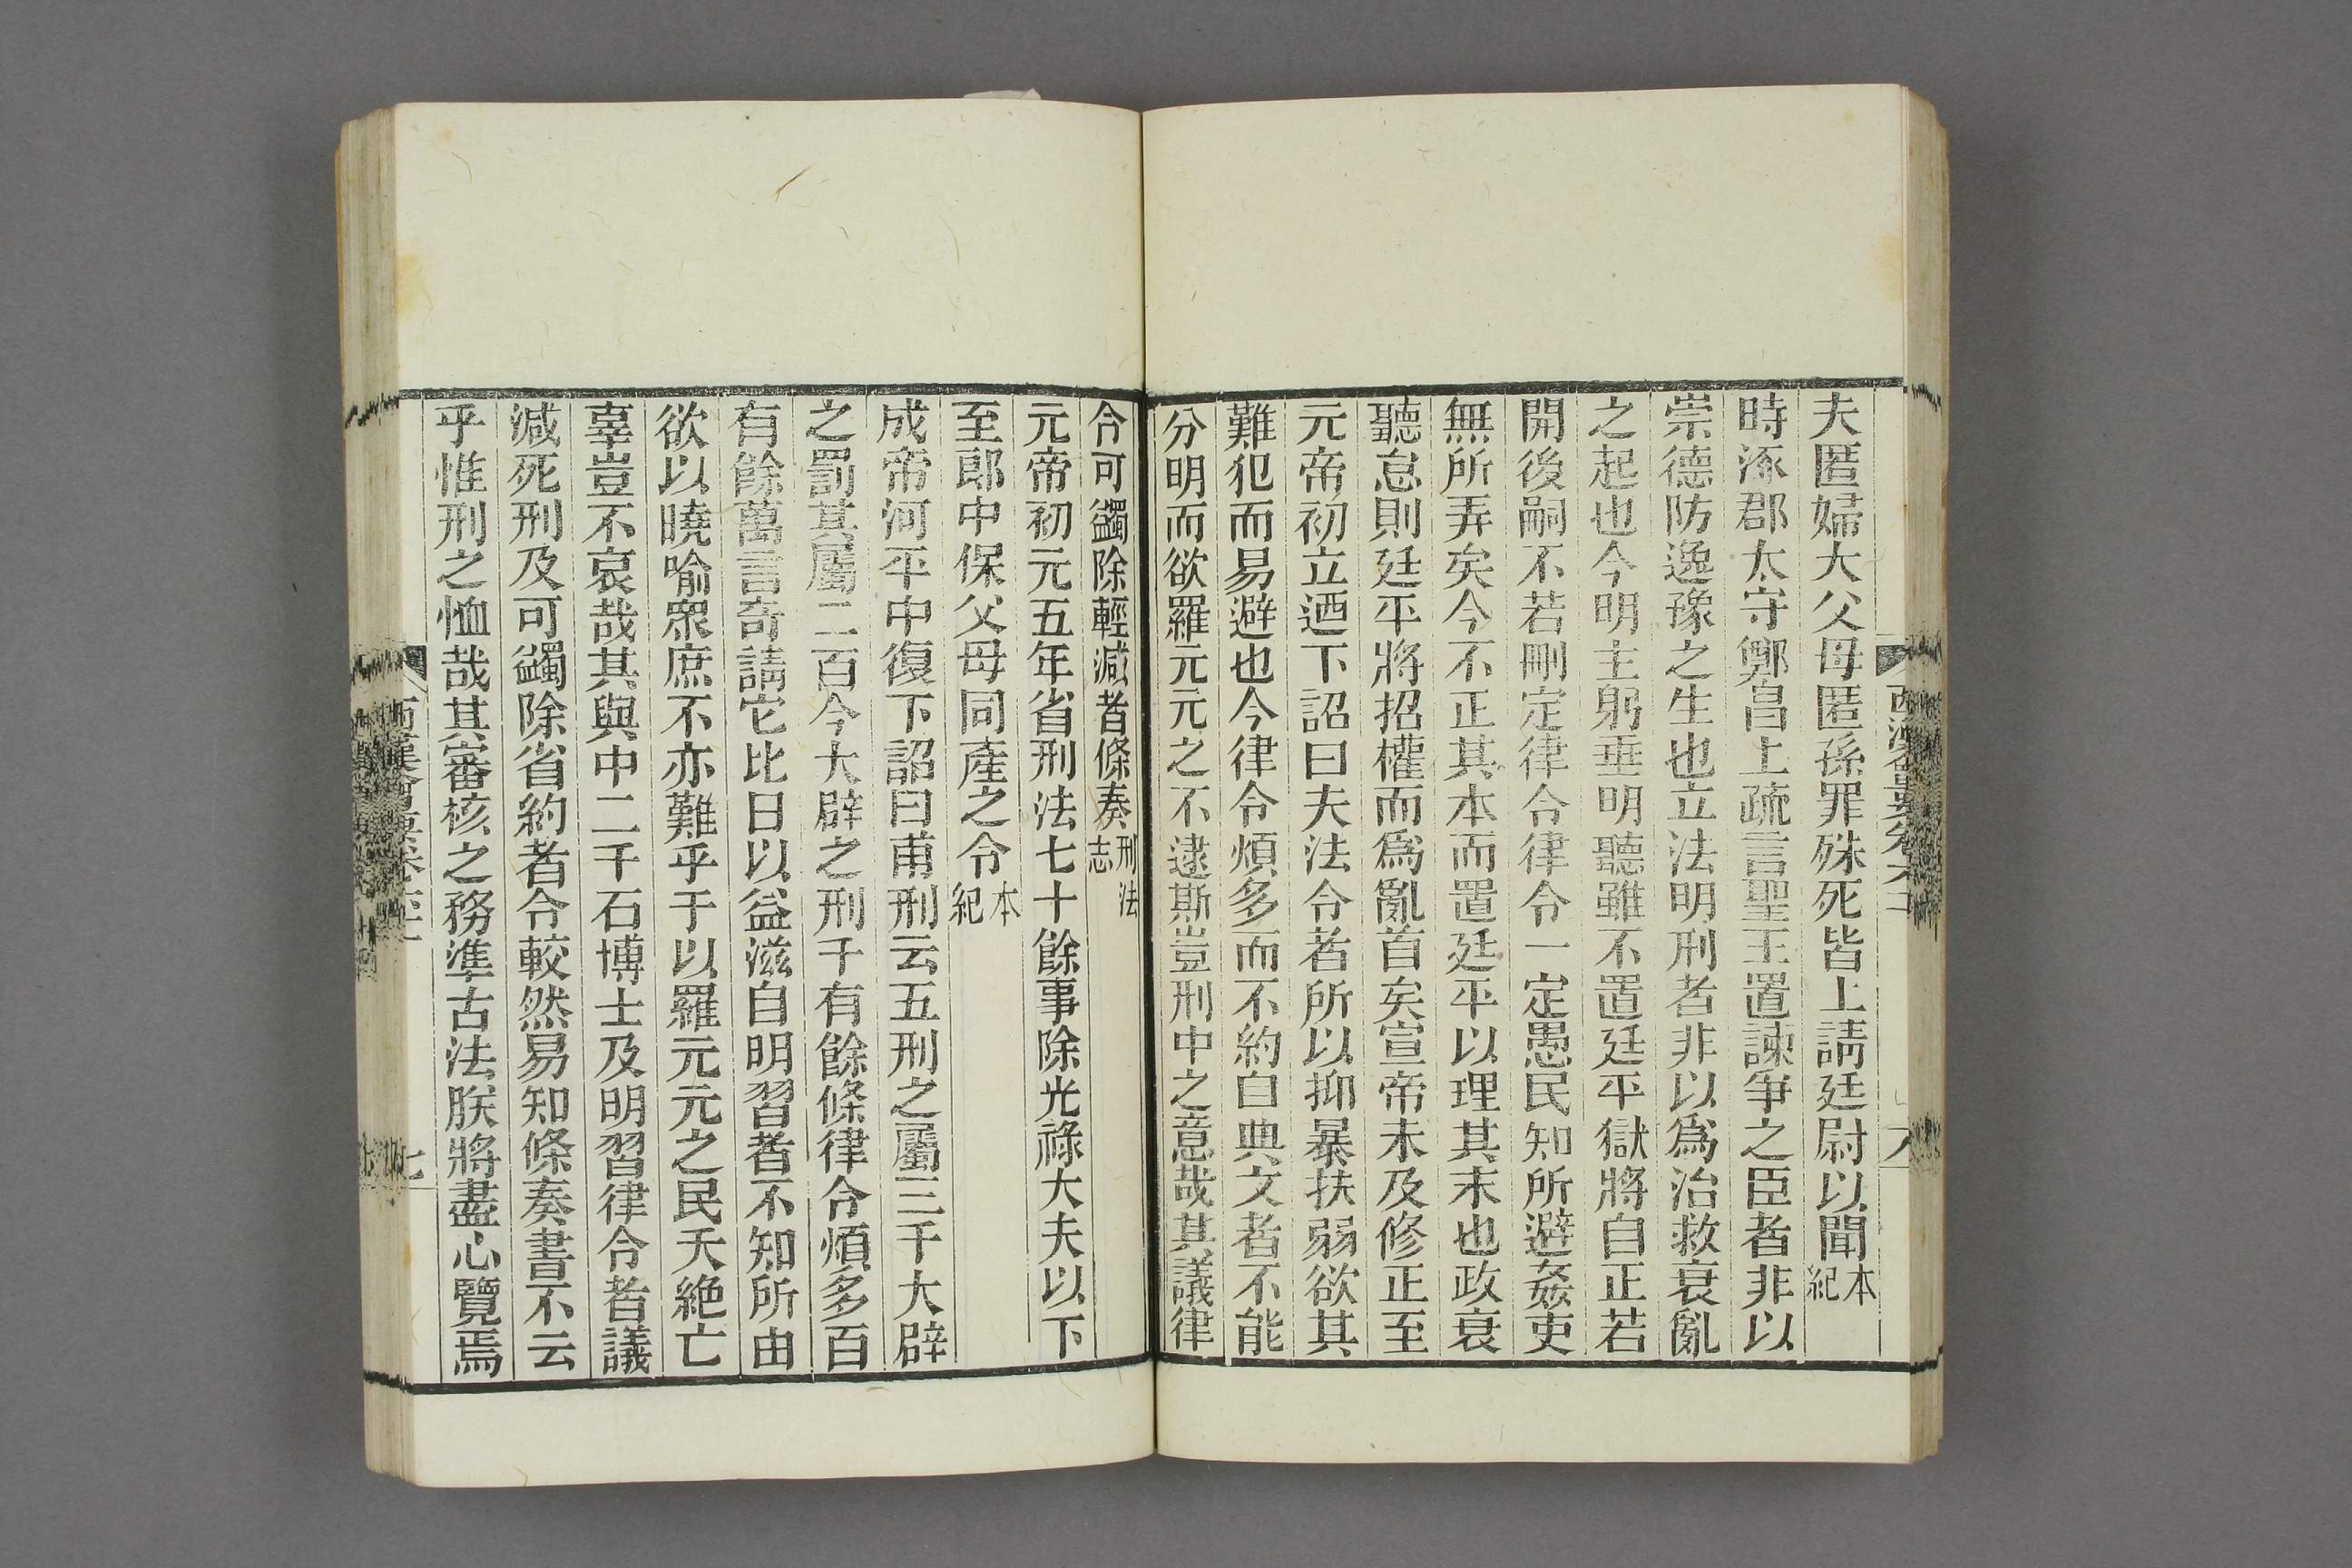 夫匿婦大父母匿孫罪殊死皆上請廷尉以聞本紀
時涿郡太守鄭昌上疏言聖王置諫爭之臣者非以
崇德防逸豫之生也立法明刑者非以爲治救衰亂
之起也今明主躬垂明聽雖不置廷平獄將自正若
開後嗣不若刪定律令律令一定愚民知所避姦吏
無所弄矣今不正其本而置廷平以理其末也政衰
聽怠則廷平將招權而爲亂首矣宣帝未及修正至
元帝初立迺下詔曰夫法令者所以抑暴扶弱欲其
難犯而易避也今律令煩多而不約自典文者不能
分明而欲羅元元之不逮斯豈刑中之意哉其議律
令可蠲除輕減者條奏刑法志
元帝初元五年省刑法七十餘事除光祿大夫以下
至郎中保父母同產之令本紀
成帝河平中復下詔曰甫刑云五刑之屬三千大辟
之罰其屬二百今大辟之刑千有餘條律令煩多百
有餘萬言奇請它比日以益滋自明習者不知所由
欲以曉喻衆庶不亦難乎于以羅元元之民夭絶亡
辜豈不哀哉其與中二千石博士及明習律令者議
減死刑及可蠲除省約者令較然易知條奏書不云
乎惟刑之恤哉其審核之務準古法朕將盡心覽焉